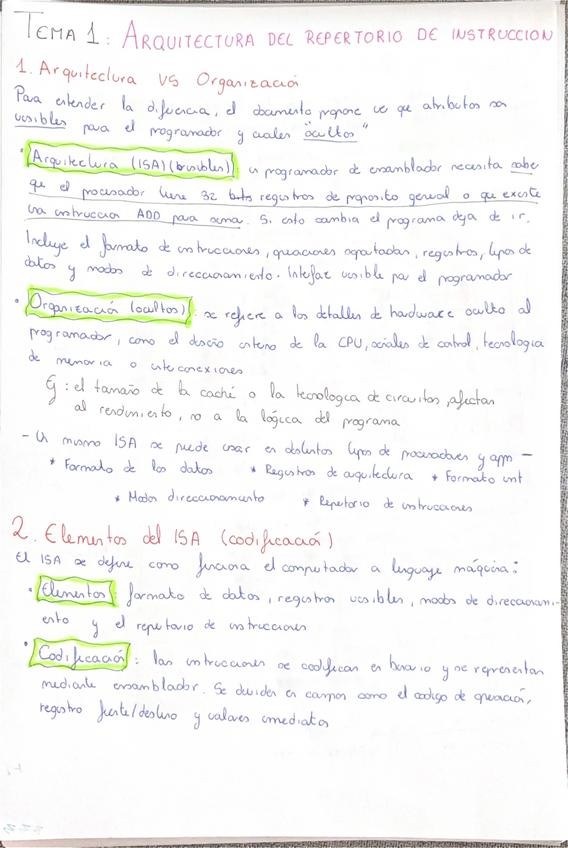 TEMA 1: ARQUITECTURA DEL REPERTORIO DE INSTRUCCION
1. Arquitectura VS Organización
Para entender la diferencia, el documento propone ve que atributos son
visibles para el programador y cuales "ocultos"
• Arquitectura (ISA) (visibles) un programador de ensamblador necesita sabe
que el procesador tiene 32 bits registros de proposito general o que existe
una instruccion ADD para suma. Si esto cambia el programa deja de ir.
Incluye el formato de instrucciones, operaciones soportadas, registros, tipos de
datos y modos de direccionamiento. Interfaz visible por el programador
• Organización (ocultos): se refiere a los detalles de hardware oculto al
programador, como el diseño interno de la CPU, señales de control, tecnologia
de memoria o interconexiones
Ej: el tamaño de la caché o la tecnologica de circuitos, afectan
al rendimiento, no a la lógica del programa
- Un mismo ISA se puede usar en distintos tipos de procesadores y app -
* Formato de los datos * Registros de arquitectura * Formato inst
* Modos direccionamiento * Repertorio de instrucciones
2. Elementos del ISA (codificación)
El ISA se define como funciona el computador a lenguaje máquina:
• Elementos: formato de datos, registros visibles, modos de direccionami-
ento y el repertorio de instrucciones
• Codificación: las instrucciones se codifican en binario y se representan
mediante ensamblador. Se dividen en campos como el codigo de operación,
registro fuente/destino y valores inmediatos